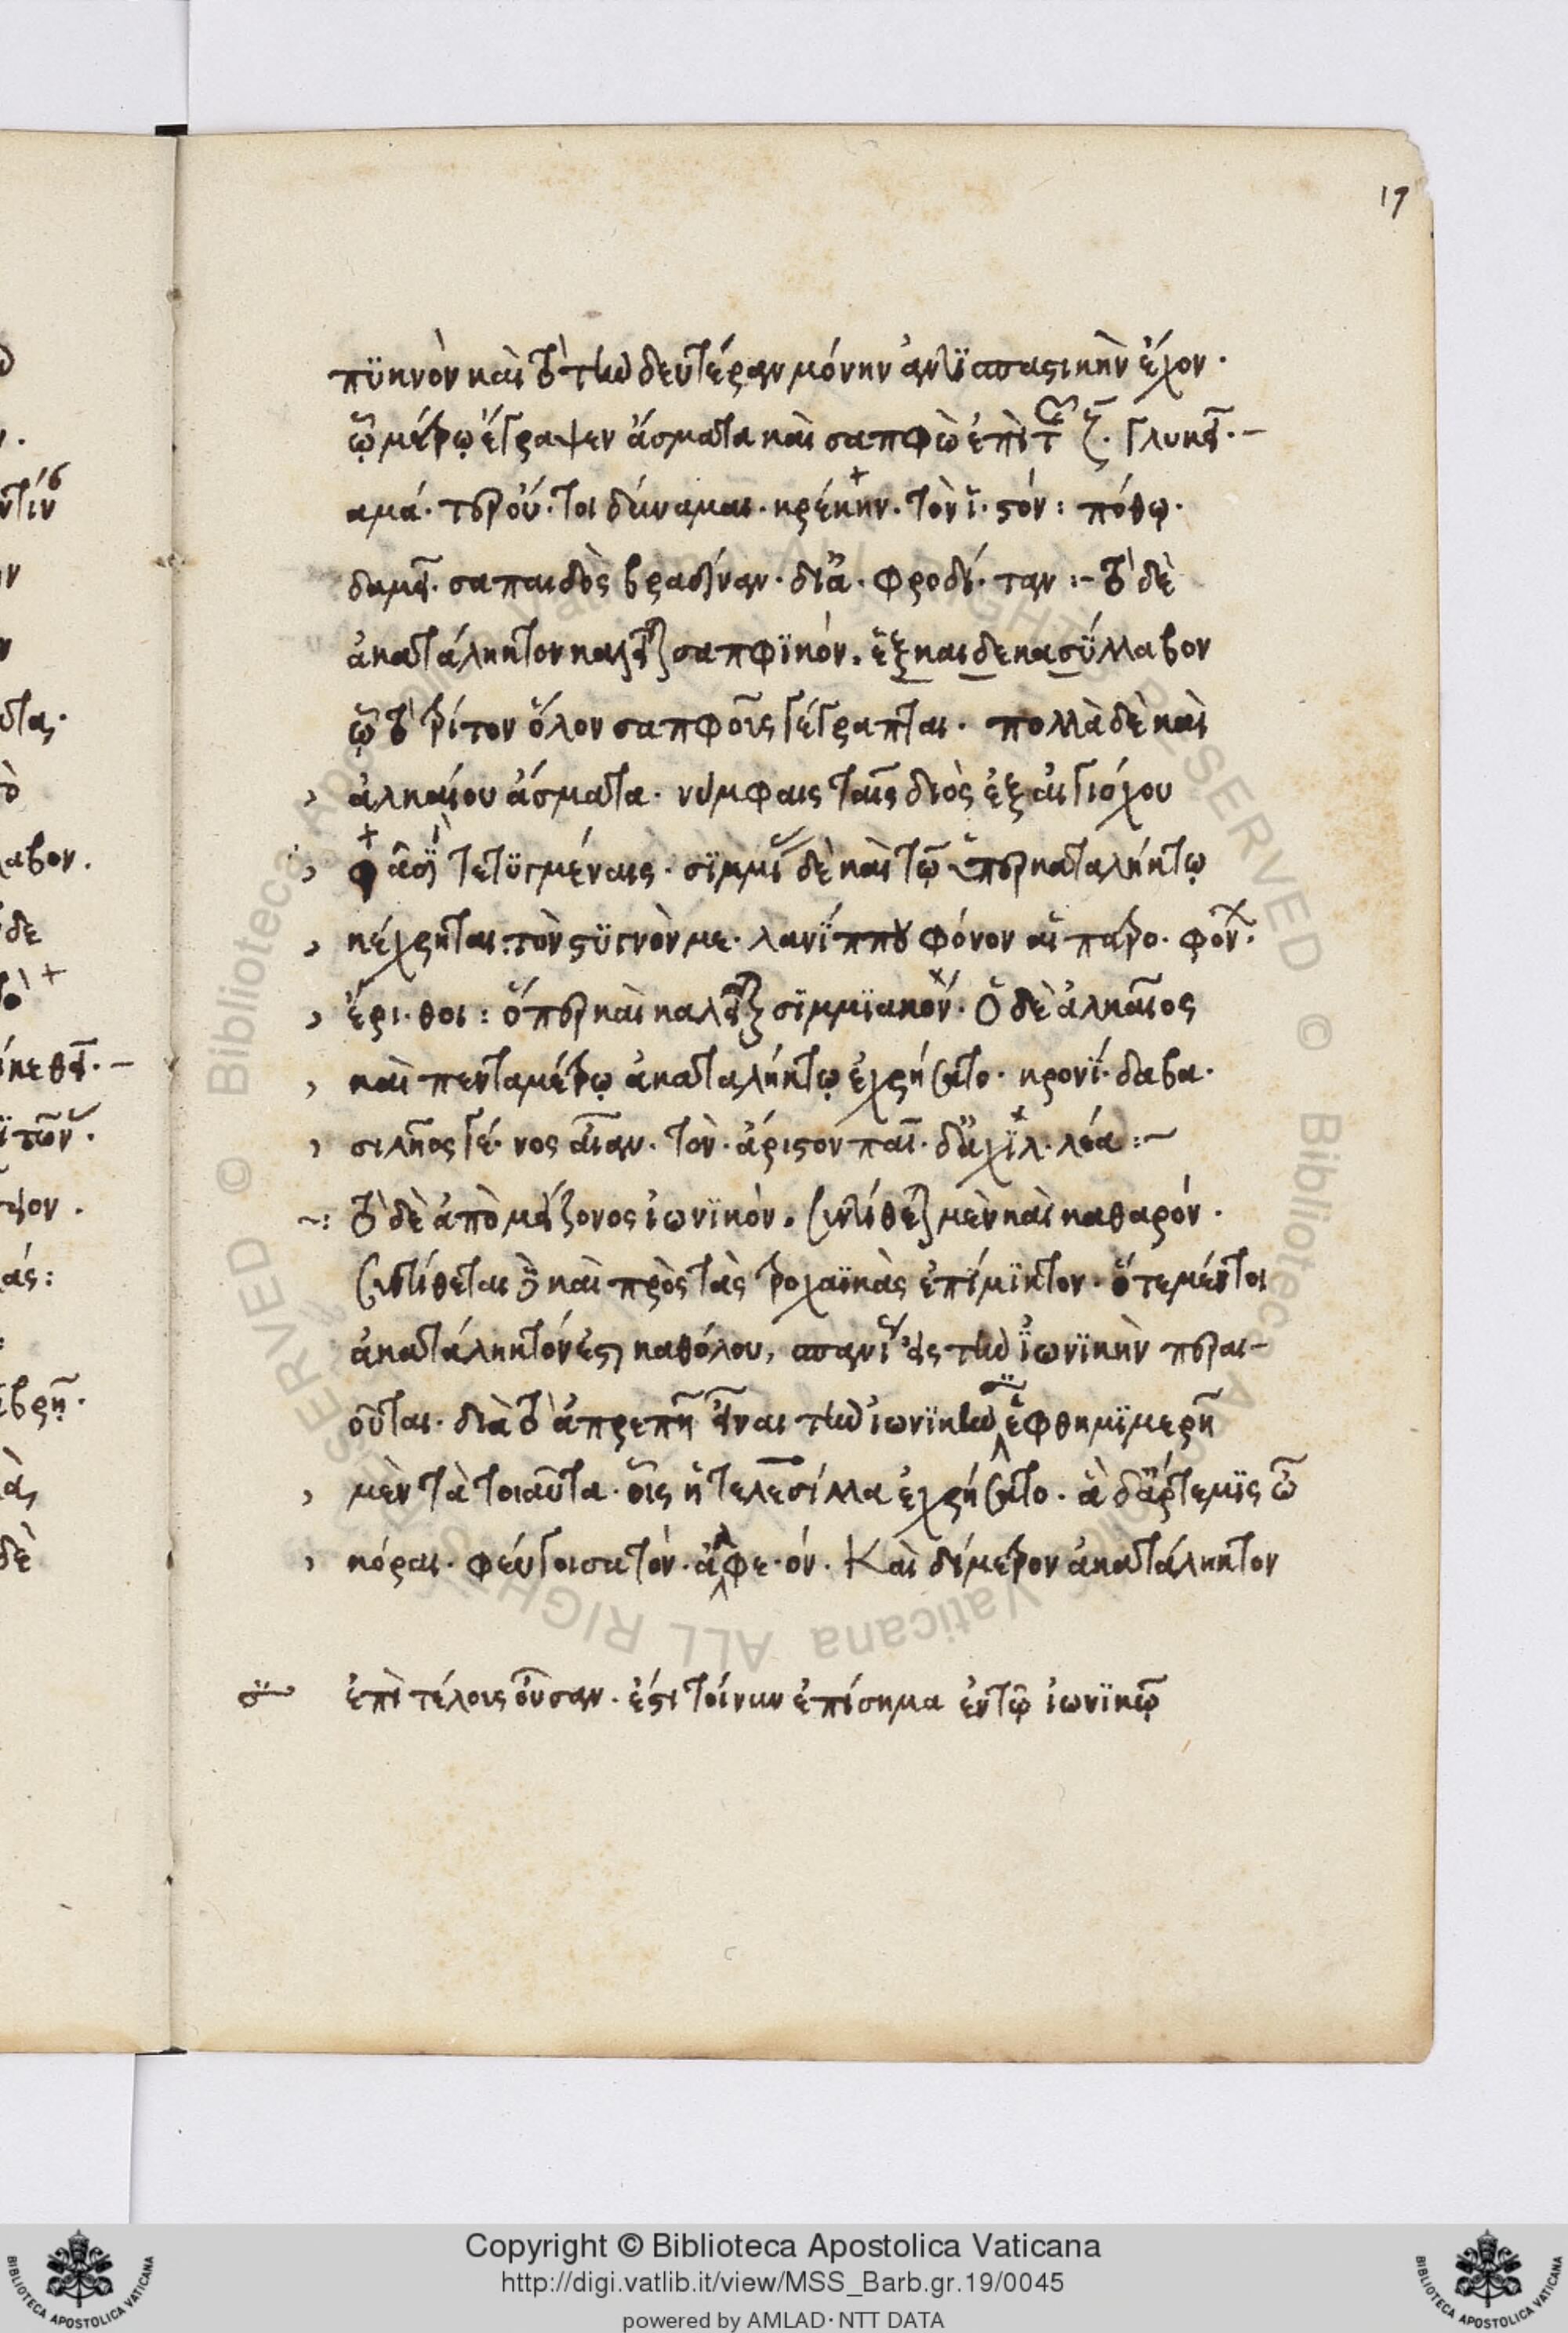 19
πϋκνὸν καὶ τὸ τὴν δευτέραν μόνην ἀντϊσπαστικὴν ἔχον·
ᾧ μέτρῳ ἔγραψεν ἄσματα καὶ σαπφὼ ἐπὶ τ ζ. γλυκεῖ·–
αμά· τηρ οὔ· τοι δύναμαι· κρέκην· τὸν ἵ· στόν: πόθῳ·
δαμεῖ· σα παιδὸς βραδίναν· διἄ· φροδί· ταν:– τὸ δὲ
ἀκατάληκτον καλεῖται σαπφϊκόν. ἑξκαιδεκασΰλλαβον
ᾧ τὸ τρίτον ὅλον σαπφοῦς γέγραπται· πολλὰ δὲ καὶ
, ἀλκαίου ἄσματα· νύμφαις ταῖς διὸς ἐξ αἰγιόχου
, φασὶ τετϋγμέναις· σϊμμί δὲ καὶ τῷ ὑπερκαταλήκτῳ
, κέχρηται: τὸν στϋγνὸν με· λανΐππου φόνον αἱ πατρο· φόν·
, ἔρι· θοι: ὅπερ καὶ καλεῖται σϊμμϊακόν· ὁ δὲ ἀλκαῖος
, καὶ πενταμέτρῳ ἀκαταλήκτῳ ἐχρήσατο· κρονΐ· δα βα·
, σιλῆος γέ· νος αἴαν· τὸν· ἄριστον παῖ· δἄχϊλ· λέα:–
~: τὸ δὲ ἀπὸ μείζονος ἰωνϊκόν. συντίθεται μὲν καὶ καθαρόν·
συντίθεται δὲ καὶ πρὸς τὰς τροχαϊκὰς ἐπίμϊκτον· ὅτε μέντοι
ἀκατάληκτόν ἐστι καθόλου, σπανί εἰς τὴν ἰωνϊκὴν περαι–
οῦται· διὰ τὸ ἀπρεπῆ εἶναι τὴν ἰωνϊκὴν ἑφθημϊμερῆ
, μὲν τὰ τοιαῦτα· οἷς ἡ τελεσίλλα ἐχρήσατο· ἁ δἄρτεμϊς ὦ
, κόραι· φεύγοισα τὸν· ἀλφε· όν. Καὶ δίμετρον ἀκατάληκτον
ἐπὶ τέλους οὖσαν· ἔστι τοίνυν ἐπίσημα ἐν τῷ ἰωνϊκῷ
Copyright © Biblioteca Apostolica Vaticana
http://digi.vatlib.it/view/MSS_Barb.gr.19/0045
powered by AMLAD · NTT DATA